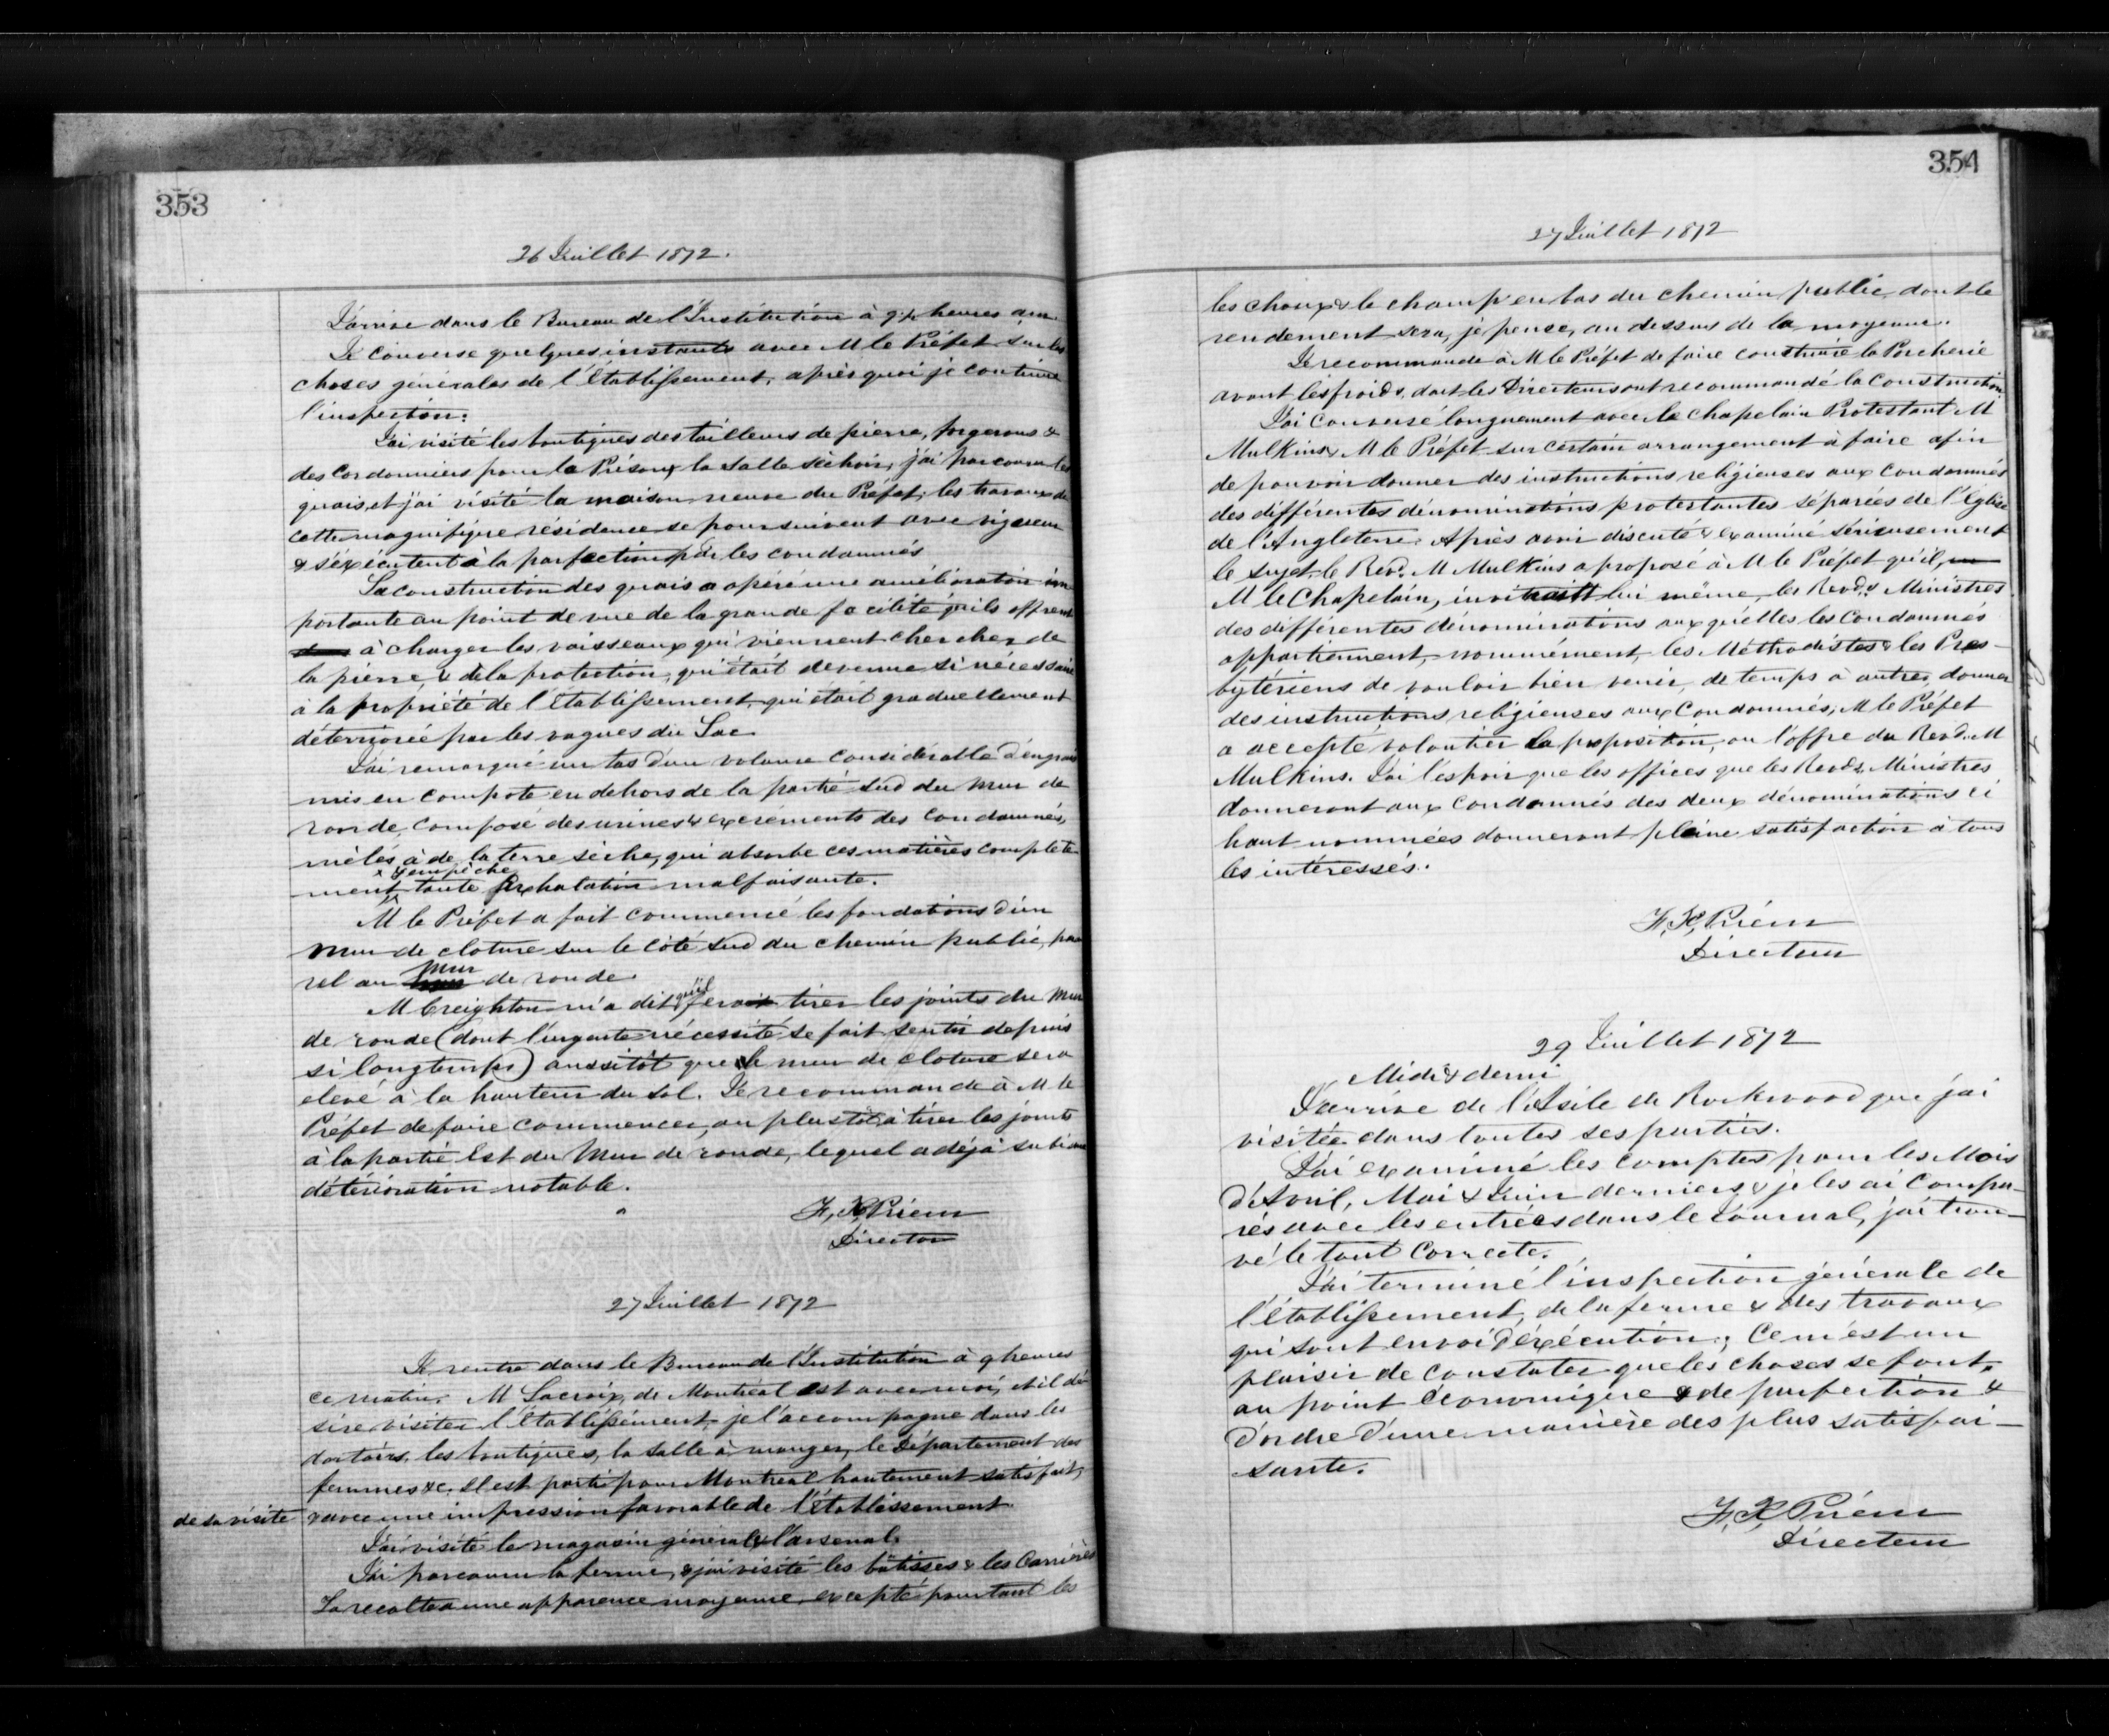 353
26 Juillet 1872.
J'arrive dans le Bureau de l'Institution à 9½ heures am.
Je converse quelques instants avec M le Préfet sur les
choses générales de l'Etablissement, après quoi je continue
l'inspection.
J'ai visité les boutiques des tailleurs de pierre, forgerons &
des Cordonniers pour la Prison, & la Salle séchoir, j'ai parcouru les
quais, et j'ai visité la maison neuve du Préfet, les travaux de
cette magnifique résidence se poursuivent avec vigueur
& s'éxécutent à la perfection par les condamnés
La construction des quais a opéré une amélioration im
portante au point de vue de la grande facilité qu'ils offrent
à charger les vaisseaux qui viennent chercher de
la pierre, & de la protection, qui était devenue si nécessaire
à la propriété de l'Etablissement, qui était graduellement
déteriorée par les vagues du Lac
J'ai remarqué un tas d'un volume considérable d'engrais
mis en compote en dehors de la partie Sud du Mur de
ronde, composé des urines & excrements des condamnés,
mêlés à de la terre sèche, qui absorbe ces matières complète
& empèche
ment toute exhalation malfaisante.
M le Préfet a fait commencé les fondations d'un
Mur de cloture sur le côté Sud du Chemin public, para
rel au mur de ronde.
M Creighton m'a dit qu'il fera tirer les joints du Mur
de ronde (dont l'urgente nécessité se fait sentir depuis
si longtemps) aussitôt que le mur de cloture sera
elevé à la hauteur du sol. Je recommande à M le
Préfet de faire commencer, au plus tôt, à tirer les joints
à la partie Est du Mur de ronde, lequel a déjà subi une
détérioration notable.
F, X, Priem
Director
27 Juillet 1872
Je rentre dans le Bureau de l'Institution à 9 heures
ce matin. M Lacroix, de Montréal est avec moi, et il dé
sire visiter l'Etablissement, je l'accompagne dans les
dortoirs, les boutiques, la salle à manger, le Département des
femmes &c. Il est parti pour Montreal hautement satisfait,
de sa visite & avec une impression favorable de l'Etablissement.
J'ai visité le magasin général & l'arsenal.
J'ai parcouru la ferme, & j'ai visité les bâtisses & les Carrières
La recolte a une apparence moyenne, excepté pourtant les
354
27 Juillet 1872
les choux & le champ en bas du chemin public, dont le
rendement sera, je pense, au dessus de la moyenne.
Je recommande à M le Préfet de faire construire la Porcherie
avant les froids, dont les Directeurs ont recommandé la Construction.
J'ai conversé longuement avec le Chapelain Protestant M
Mulkins & M le Préfet sur certain arrangement à faire afin
de pouvoir donner des instructions religieuses aux Condamnés
des différentes dénominations protestantes séparées de l'Eglise
de l'Angleterre. Après avoir discuté & examiné sérieusement
le sujet, le Revd. M Mulkins a proposé à M le Préfet qu'il,
M le Chapelain, inviterait lui même, les Revds. Ministres
des différentes dénominations aux quélles les Condamnés
appartiennent, nommément, les Méthodistes & les Pres-
bytériens de vouloir bien venir, de temps à autres, donner
des instructions religieuses aux Condamnés, M le Préfet
a accepté volontier la proposition, ou l'offre du Revd. M
Mulkins. J'ai l'espoir que les offices que les Revds. Ministres
donneront aux Condamnés des deux dénominations ci
haut nommées donneront pleine satisfaction à tous
les intéressés.
F, X, Priem
Directeur
29 Juillet 1872
Midi & demi
J'arrive de l'Asile de Rockwood que j'ai
visitée dans toutes ses parties.
J'ai examiné les comptes pour les Mois
d'Avril, Mai & Juin derniers & je les ai compa-
rés avec les entrées dans le Journal, j'ai trou-
vé le tout Correcte.
J'ai terminé l'inspection générale de
l'établissement, de la ferme & des travaux
qui sont en voi d'éxécution; Ce m'est un
plaisir de constater que les choses se font,
au point économique & de perfection &
d'ordre d'une manière des plus satisfai-
sante.
F, X, Priem
Directeur